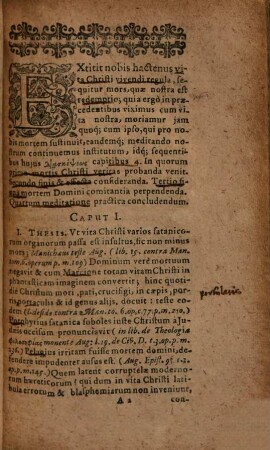 EXtitit nobis hactenus vi-
ta Christi vivendi regula, se-
quitur mors, quæ nostra est
redemptio, quia ergò in præ-
cedentibus viximus cum vi-
ta nostra, moriamur jam
quoq; cum ipso, qui pro no-
bis mortem sustinuit, tandemq; meditando no-
strum continuemus institutum, idq; sequentibus
bus hujus capitibus 4. In quorum
primo mortis Christi veritas probanda venit.
Secundo finis & effecta consideranda. Tertio fi-
gura mortem Domini comitantia perpendenda.
Quartum meditatione practica concludendum.
CAPUT I.
I. THESIS. Ut vita Christi varios satanico-
rum organorum passa est insultus, sic non minus
mors; Manichæus teste Aug. ( lib. 15. contra Man.
tom. 6. operum p. m. 109) Dominum verè mortuum
negavit & cum Marcione totam vitam Christi in
phantasticam imaginem convertit; hinc quod-
dit Christum mori, pati, crucifigi, in capis, por-
tusculi & id genus aliis, docuit: teste eodem
( l. de fide contra Man. to. 6. op. c. 77. p. m. 210.)
Porphyrius satanica soboles iuste Christum à Ju-
dæis mortuum pronunciavit ( in lib. de Theologia
monente Aug: l. 19. de Civ. D. t. 5. op. p. m.
236.) Pelagius irritam fuisse mortem domini, de-
fendere impudenter ausus est. (Aug. Epist. 95. t. 2.
op. p. m. 145.) Quem latent corruptela moderno-
rum hæreticorum ( qui dum in vita Christi lati-
bula errorum & blasphemiarum non inveniunt,
A 2 con-